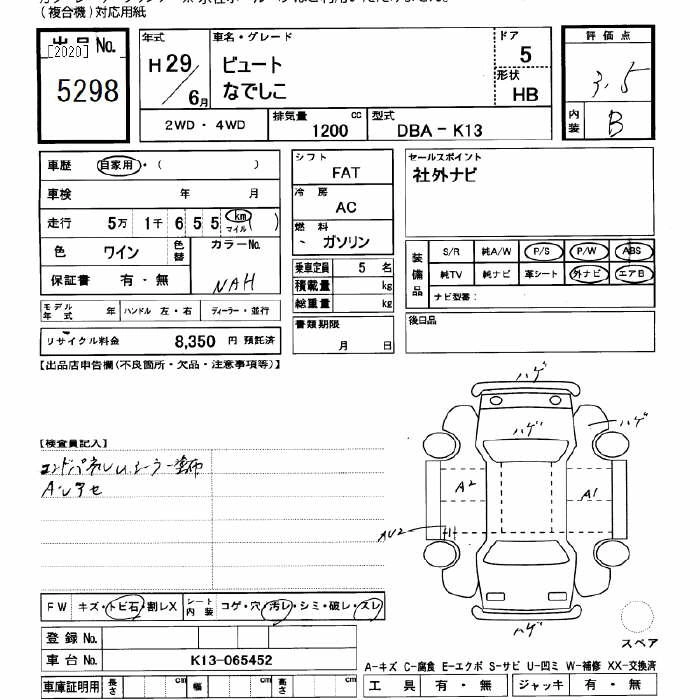 (複合機)対応用紙
出品 No.
[2020]
5298
年式
H29
6月
車名・グレード
ビュート
なでしこ
ドア
5
形状
HB
2WD・4WD
排気量 cc
1200
型式
DBA－K13
評価点
3.5
内装
B
車歴 自家用・( )
車検 年 月
走行 5万 1千 6 5 5 km マイル( )
色 ワイン 色替 カラーNo.
NAH
保証書 有・無
モデル年式 年 ハンドル 左・右 ディーラー・並行
リサイクル料金 8,350 円 預託済
シフト
FAT
冷房
AC
燃料
ガソリン
乗車定員 5 名
積載量 kg
総重量 kg
書類期限
月 日
セールスポイント
社外ナビ
装備品
S/R 純A/W P/S P/W ABS
純TV 純ナビ 革シート 外ナビ エアB
ナビ型番：
後日品
【出品店申告欄(不良箇所・欠品・注意事項等)】
【検査員記入】
ハゲ
ハゲ
ハゲ
A2
A1
AU2
ハゲ
スペア
FW キズ・トビ石・割レX シート内装 コゲ・穴・汚レ・シミ・破レ・スレ
登録 No.
車台 No. K13-065452
車庫証明用 長さ cm 幅 cm 高さ cm
A-キズ C-腐食 E-エクボ S-サビ U-凹ミ W-補修 XX-交換済
工具 有・無 ジャッキ 有・無